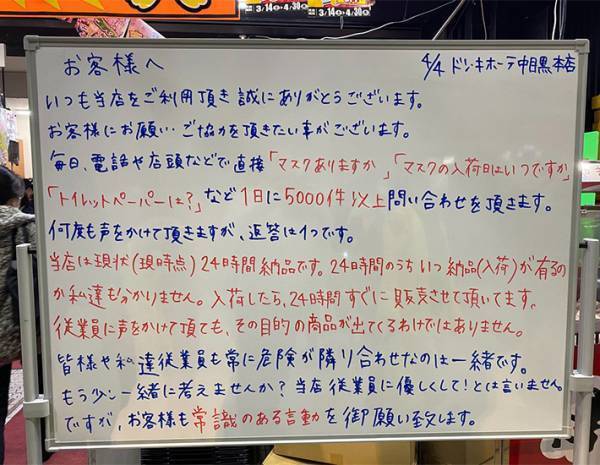 3/14 4/30
3/14 4/30
お客様へ 4/4 ドン・キホーテ中目黒本店
いつも当店をご利用頂き誠にありがとうございます。
お客様にお願い…ご協力を頂きたい事がございます。
毎日、電話や店頭などで直接「マスクありますか」「マスクの入荷日はいつですか」
「トイレットペーパーは？」など1日に5000件以上問い合わせを頂きます。
何度も声をかけて頂きますが、返答は1つです。
当店は現状(現時点)24時間納品です。24時間のうちいつ納品(入荷)が有るの
か私達も分かりません。入荷したら、24時間すぐに販売させて頂いてます。
従業員に声をかけて頂ても、その目的の商品が出てくるわけではありません。
皆様や私達従業員も常に危険が隣り合わせなのは一緒です。
もう少し一緒に考えませんか？当店従業員に優しくして！とは言いません。
ですが、お客様も常識のある言動を御願い致します。